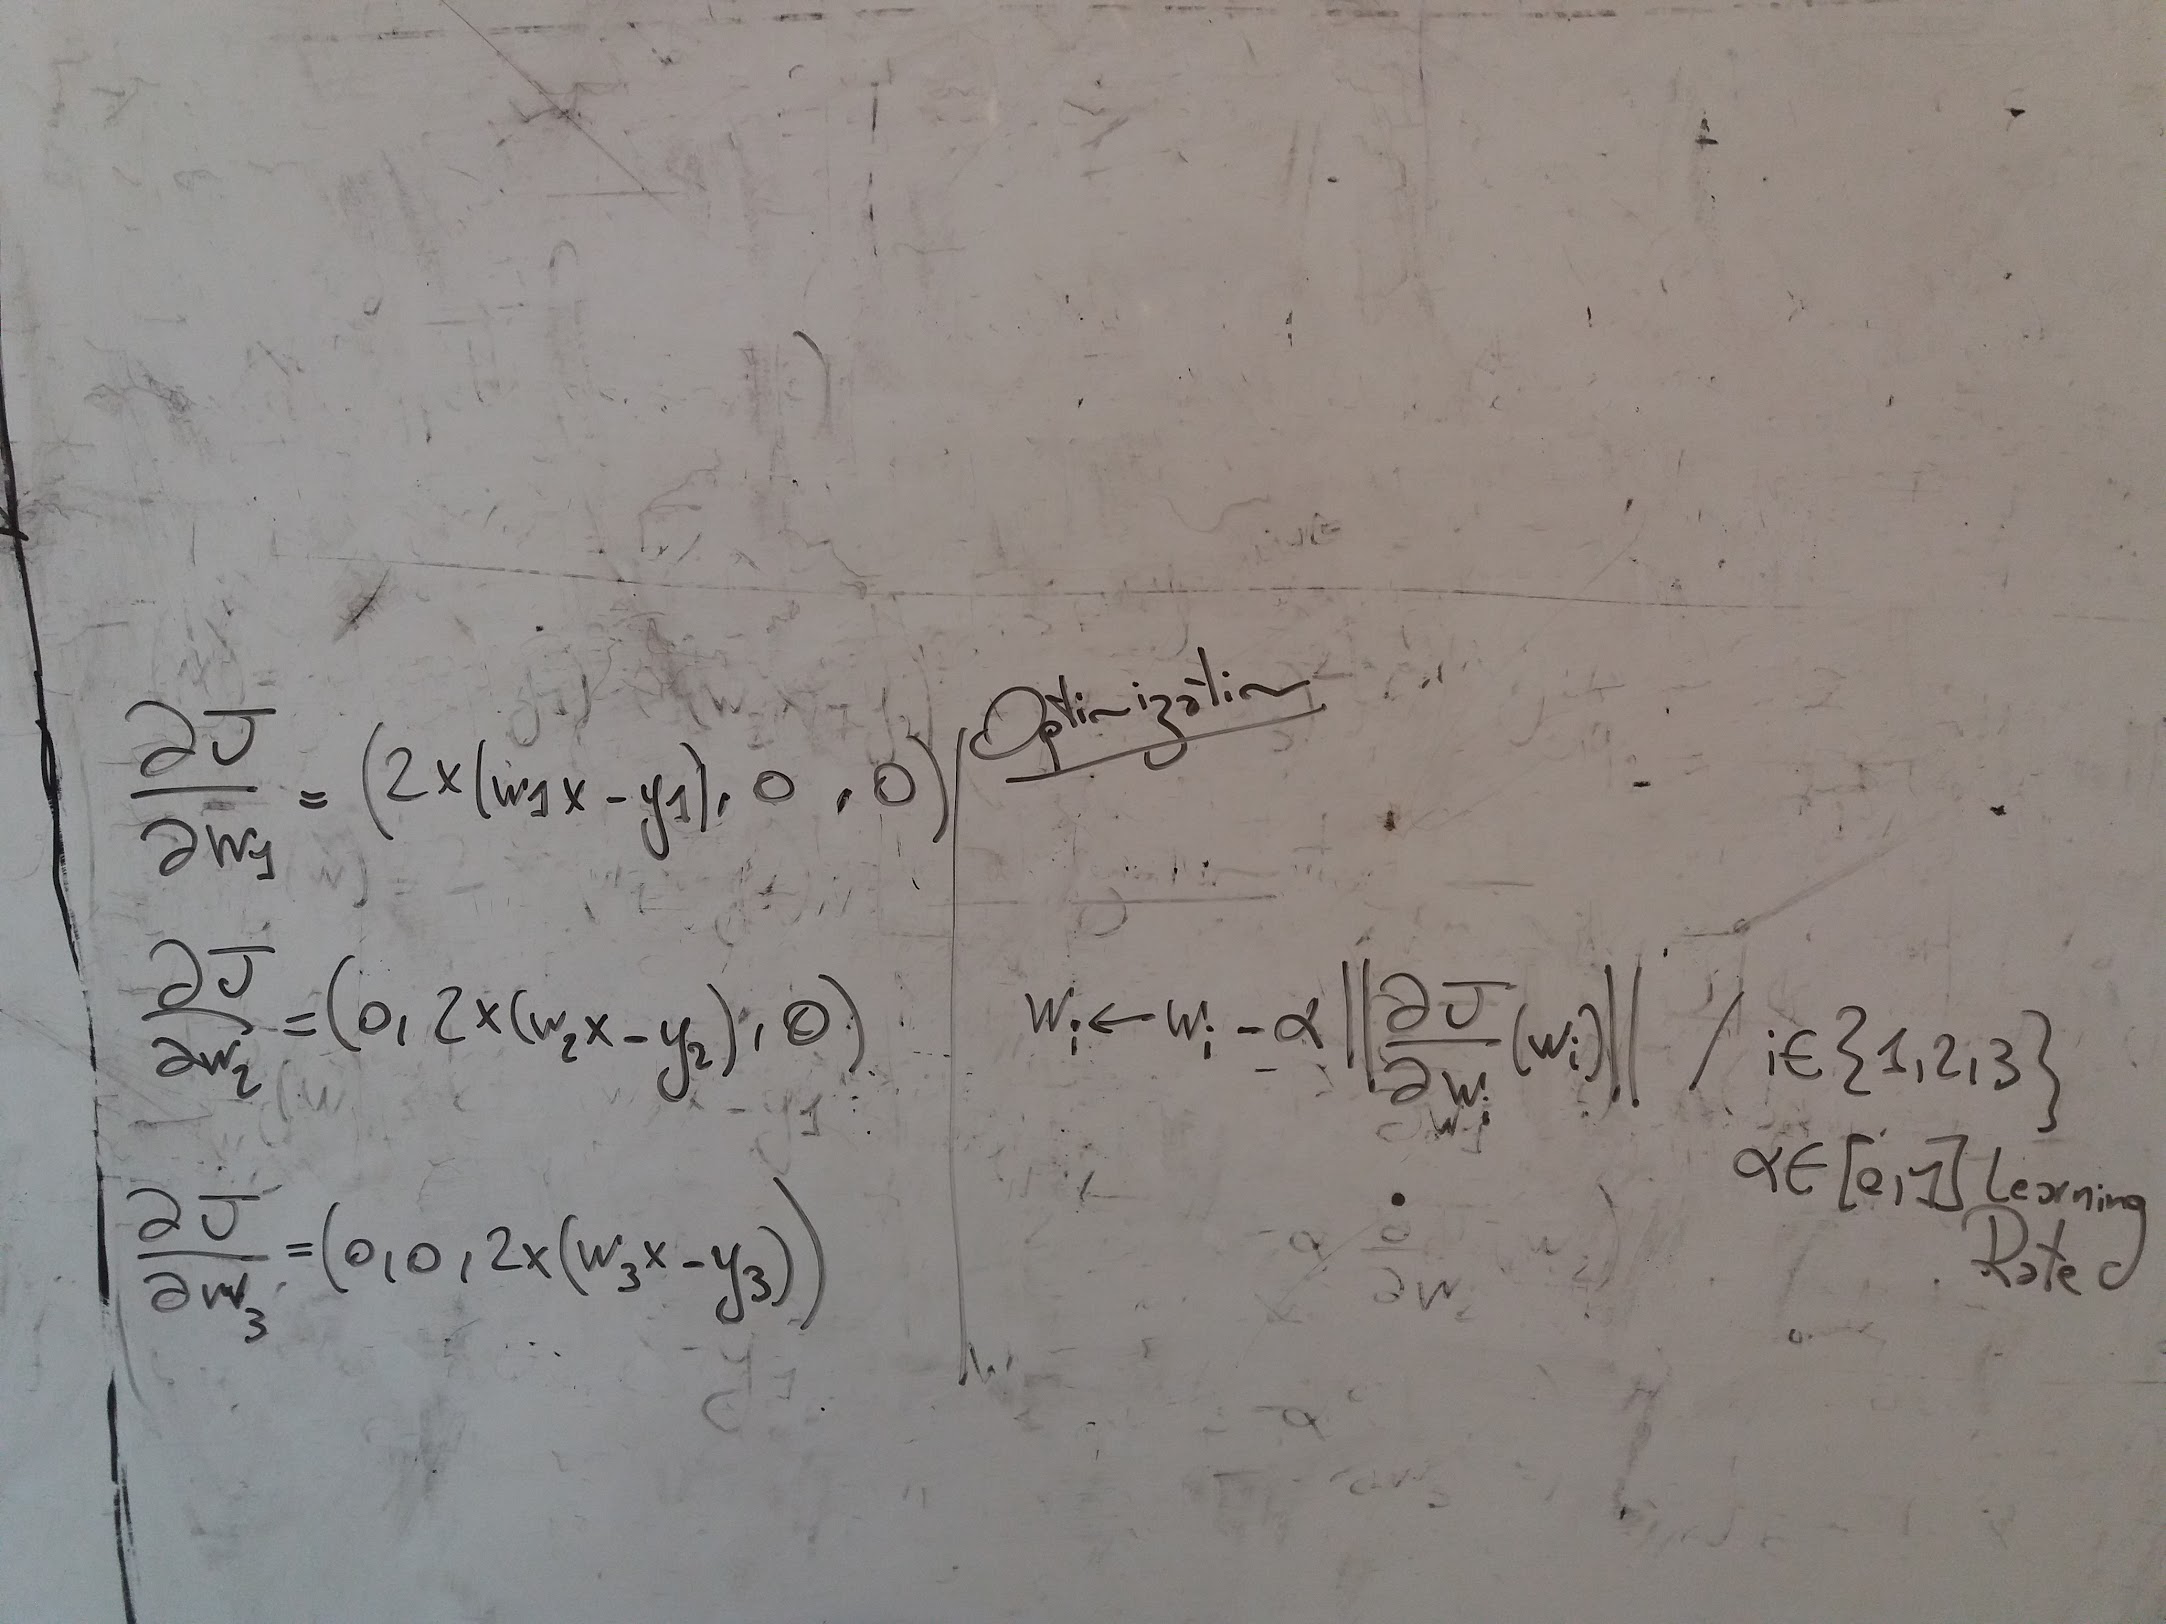 ∂J/∂w1 = (2x(w1x - y1), 0, 0)
∂J/∂w2 = (0, 2x(w2x - y2), 0)
∂J/∂w3 = (0, 0, 2x(w3x - y3))
Optimization
wi ← wi - α ||∂J/∂wi (wi)|| / i ∈ {1,2,3}
α ∈ [0,1] Learning
Rate